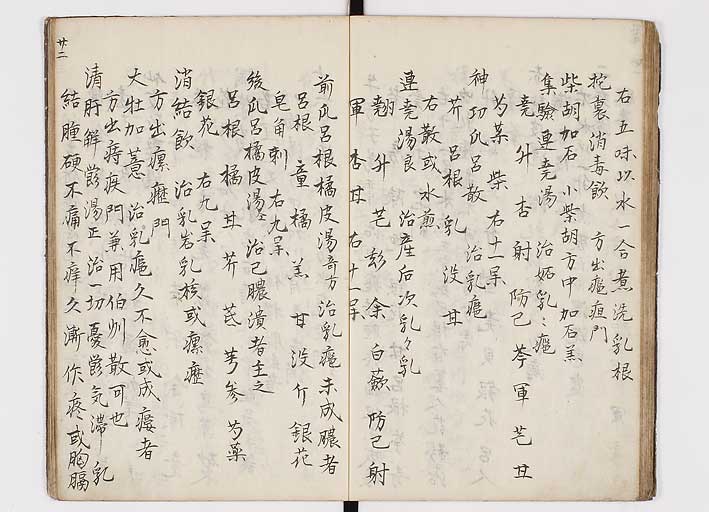 右五味以水一合煮洗乳根
托裏消毒飲　方出癰疽門
柴胡加石　小柴胡方中加石羔
集驗連堯湯　治妬乳〻癰
堯升　杏　射　防已　芩　軍　芒　甘
芍　某　柴　右十一呆
神功瓜呂散　治乳癰
芥　呂根　乳　没　甘
右散或水煎
連堯湯良　治產后次乳々乳
翹　升　芒　彭　余　白蘞　防已　射
軍　杏　甘　右十一呆
前瓜呂根橘皮湯奇方　治乳癰未成膿者
呂根　童　橘　羔　甘　没　介　銀花
皂角刺　右九呆
後瓜呂橘皮湯　治已膿潰者主之
呂根　橘　甘　芥　芪　芎　參　芍藥
銀花　右九呆
消結飲　治乳岩乳核或瘰癧
方出瘰癧門
大牡加薏　治乳癰久不愈或成瘻者
方出痔疾門兼用伯州散可也
清肝解鬱湯正　治一切憂鬱気滯　乳
結腫硬不痛不痒久漸作疼或胸膈
廿二